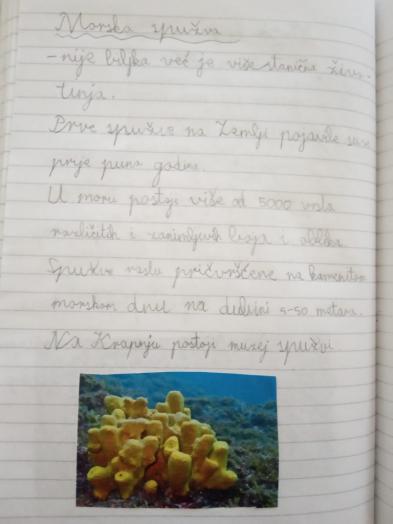 Morska spužva
- nije biljka već je više stanična živo-
tinja.
Prve spužve na Zemlji pojavile su se
prije puno godina.
U moru postoji više od 5000 vrsta
različitih i zanimljivih boja i oblika.
Spužve rastu pričvršćene na kamenitom
morskom dnu na dubini 5-50 metara.
Na Krapnju postoji muzej spužvi